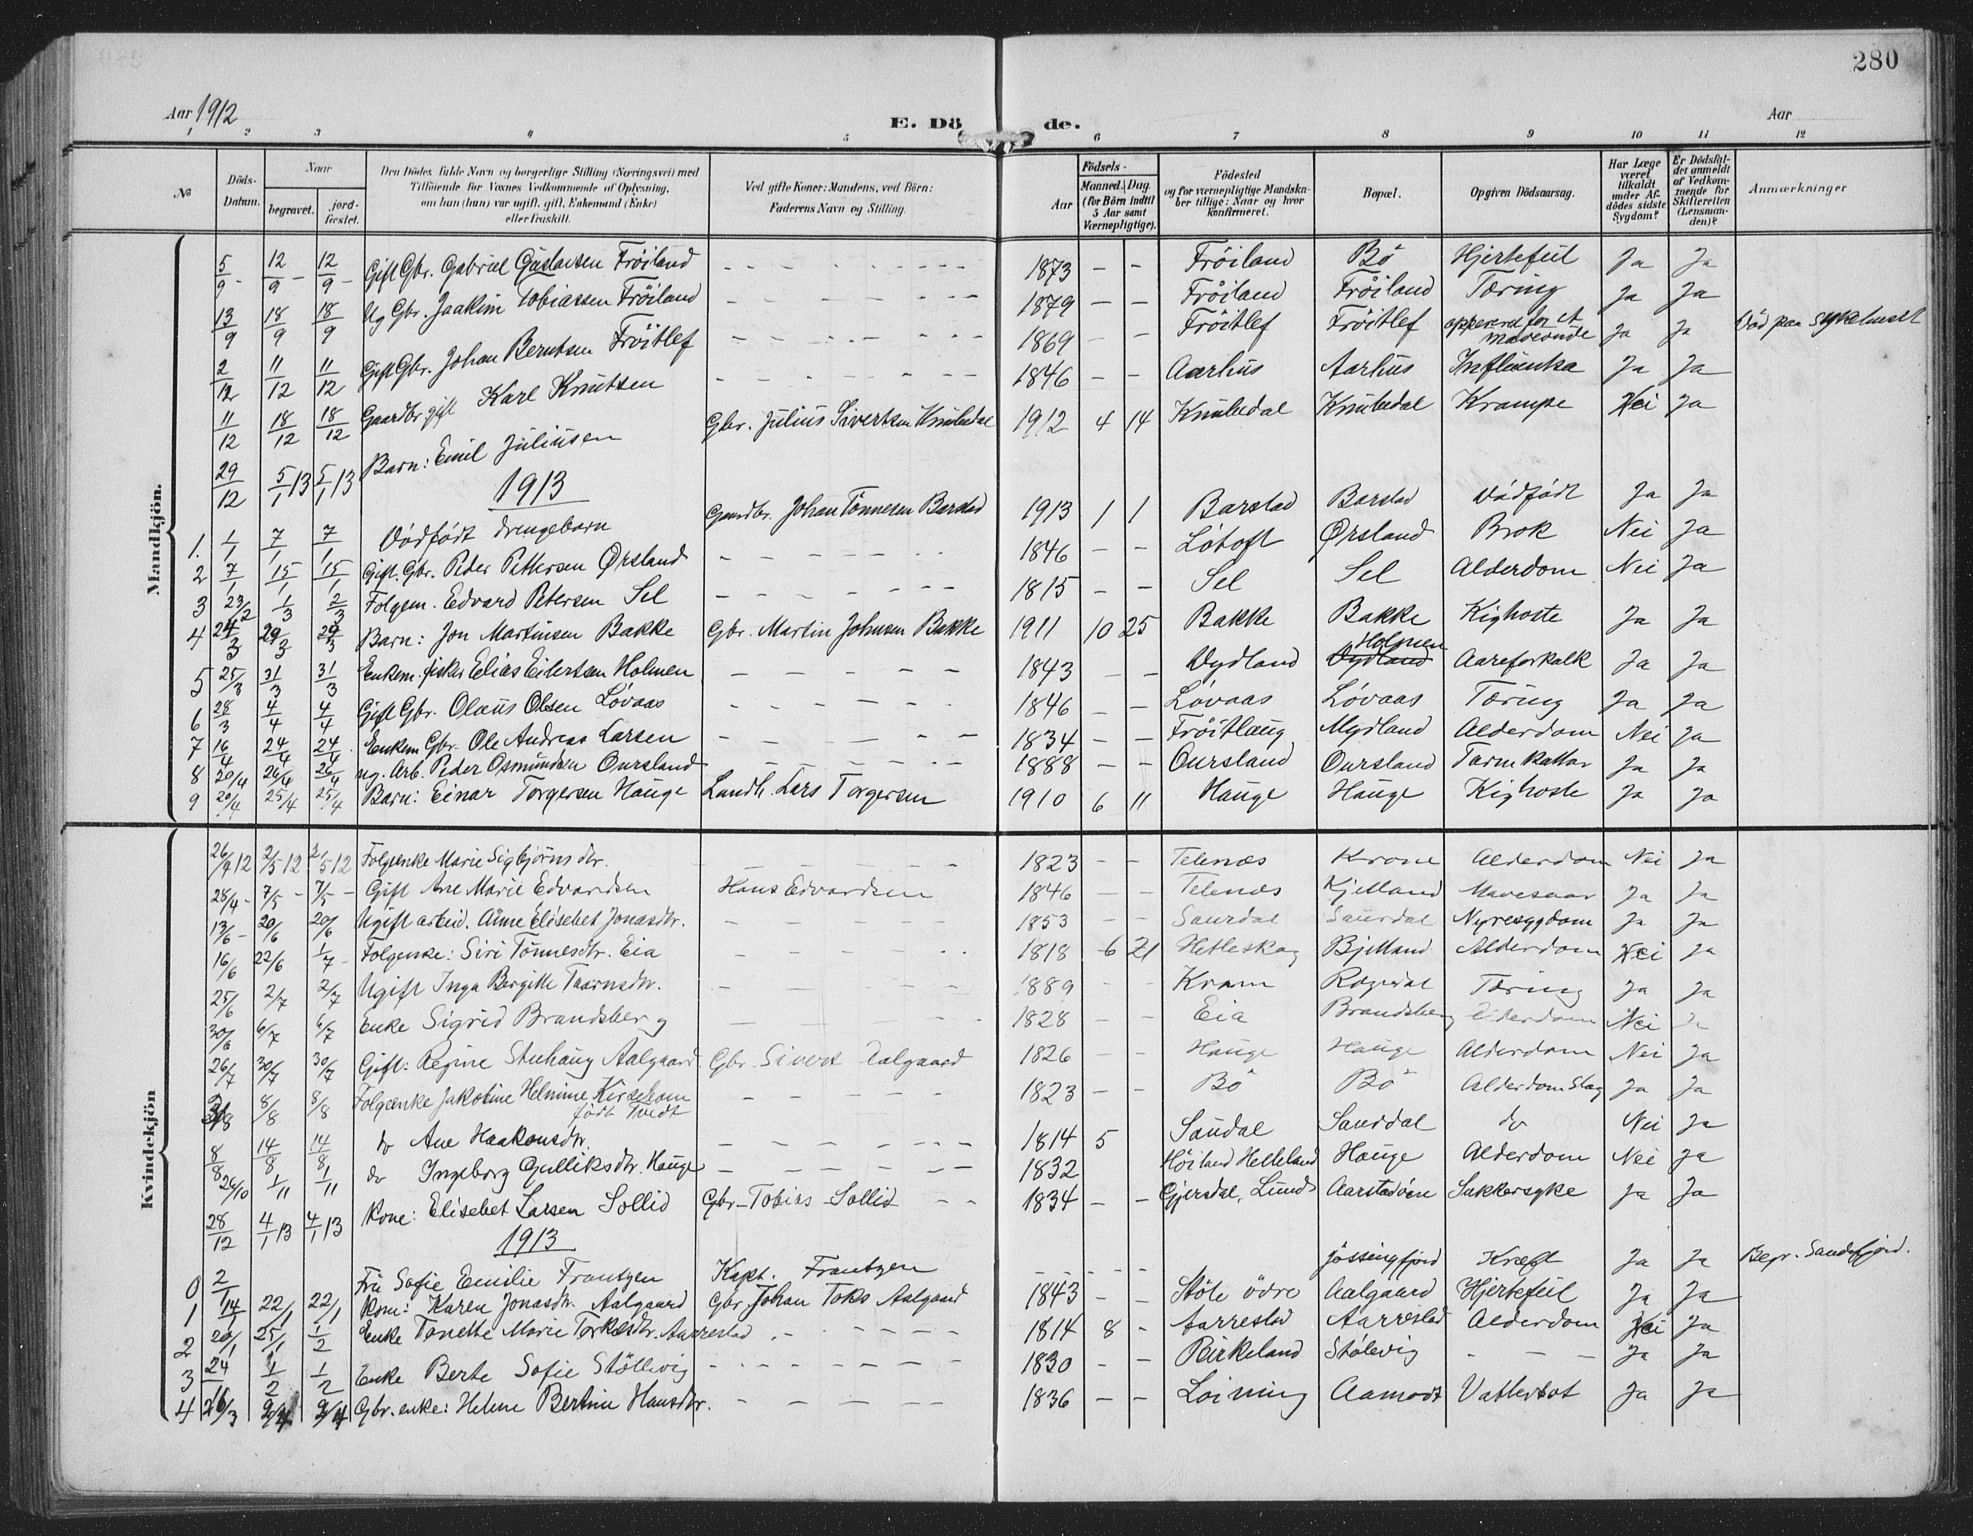 280
Aar 1912 E. Dö de. Aar
1 2 3 4 5 6 7 8 9 10 11 12
No Döds-Datum. Naar begravet. jord-fæstet. Den Dödes fulde Navn og borgerlige Stilling (Næringsvei) med Tilföiende for Voxnes Vedkommende af Oplysning, om hun (han) var ugift, gift, Enkemand (Enke) eller fraskilt. Ved gifte Koner: Mandens, ved Börn: Faderens Navn og Stilling. Födsels- Aar Maaned. Dag. (for Börn indtil 5 Aar samt Værnepligtige). Födested og for værnepligtige Mandskaber tillige: Naar og hvor konfirmeret. Bopæl. Opgiven Dödsaarsag. Har Læge været tilkaldt under Afdödes sidste Sygdom? Er Dödsfaldet anmeldt af Vedkommende for Skifteretten (Lensmanden)? Anmærkninger
Mandkjön.
5/9 - 12/9 - 12/9 - Gift Gbr. Gabriel Gustavsen Fröiland 1873 - - Fröiland Bö Hjertefeil Ja Ja
13/9 18/9 18/9 Ug Gbr. Joakim Tobiassen Fröiland 1879 - - Fröiland Fröiland Tæring Ja Ja
2/12 11/12 11/12 Gift Gbr. Johan Berntsen Fröitlef 1869 - - Fröitlef Fröitlef opperert for et maveonde Ja Ja Död paa sykehuset
11/12 18/12 18/12 Gaardbr gift Karl Knutsen 1846 - - Aarhus Aarhus Influenka Ja Ja
29/12 5/1 13 5/1 13 Barn: Emil Juliussen Gbr. Julius Sivertsen Knubedal 1912 4 14 Knubedal Knubedal Krampe Nei Ja
1913
1. 1/1 7/1 7/1 Dödfödt drengebarn Gaardbr. Johan Tönnesen Barstad 1913 1 1 Barstad Barstad Dödfödt Ja Ja
2 7/1 15/1 15/1 Gift. Gbr. Peder Pettersen Ørsland 1846 - - Lötoft Ørsland Brok Nei Ja
3 23/2 1/3 2/3 Folgem. Edvard Petersen Sel 1815 - - Sel Sel Alderdom Nei Ja
4 24/3 29/3 29/3 Barn: Jon Martinsen Bakke Gbr. Martin Johnsen Bakke 1911 10 25 Bakke Bakke Kighoste Ja Ja
5 25/3 31/3 31/3 Enkem. fisker Elias Eilertsen Holmen 1843 - - Dydland Holmen Dydland Aareforkalk Ja Ja
6 28/3 4/4 4/4 Gift Gbr. Olaus Olsen Løvaas 1846 - - Løvaas Løvaas Tæring Ja Ja
7 16/4 24/4 24/4 Enkem Gbr. Ole Andreas Larsen 1834 - - Fröitlaug Mydland Alderdom Nei Ja
8 20/4 26/4 26/4 ug. Arb. Peder Osmundsen Oursland 1888 - - Oursland Oursland Tarmkattar Ja Ja
9 20/4 25/4 25/4 Barn: Einar Torgersen Hauge Landh. Lars Torgersen 1910 6 11 Hauge Hauge Kighoste Ja Ja
Kvindekjön
26/4 12 2/5 12 2/5 12 Folgeenke Marie Sigbjörnsdtr. 1823 - - Telenæs Krone Alderdom Nei Ja
28/4 - 7/5 - 7/5 - Gift Ane Marie Edvardsen Hans Edvardsen 1846 - - Telenæs Kjelland Mavesaar Ja Ja
13/6 - 20/6 20/6 Ugift arbeid. Anne Elisebet Jonasdtr. 1853 - - Saurdal Saurdal Nyresygdom Ja Ja
16/6 22/6 1/7 - Folgenke: Siri Tönnesdtr. Eia 1818 6 21 Hetleskog Bjelland Alderdom Nei Ja
25/6 2/7 2/7 Ugift Inga Bergitte Taarnsdtr. 1889 - - Kram Rægedal Tæring Ja Ja
30/6 6/7 6/7 Enke Sigrid Brandsberg 1828 - - Eia Brandsberg Alderdom Nei Ja
26/7 30/7 30/7 Gift: Regine Stuhaug Aalgaard Gbr. Sivert Aalgaard 1826 - - Hauge Hauge Alderdom Nei Ja
8/8 8/8 Folgeenke Jakobine Helmine Kirsebom födt Tvedt 1823 - - Bö Bö Alderdom Slag Ja Ja
8/8 14/8 14/8 do Ane Haakonsdtr. 1814 5 Saudal Saurdal do Nei Ja
26/10 1/11 1/11 do Ingeborg Gulliksdtr. Hauge 1832 Höiland Helleland Hauge Alderdom Nei Ja
28/12 4/1 13 4/1 13 Kone: Elisebet Larsen Sollid Gbr - Tobias Sollid 1834 - - Gjersdal, Lund Aarstadöen Sukkersyke Ja Ja
1913
0 2/1 Fru Sofie Emilie Frantzen Kapt. Frantzen Jössingfjord Kræft Ja Ja Begr. Sandefjord.
1 14/1 22/1 22/1 Kone: Karen Jonasdtr. Aalgaard Gbr Johan Toks Aalgaard 1843 - - Stöle ödre Aalgaard Hjertefeil Ja Ja
2 20/1 25/1 1/2 Enke Tonette Marie Torkelsdtr. Aarrestad 1814 8 - Aarrestad Aarrestad Alderdom Nei Ja
3 24/1 1/2 1/2 Enke Berte Sofie Stöllevig 1830 - - Birkeland Stölevig - - - Ja Ja
4 26/3 2/4 2/4 Gbr. enke: Helene Bertine Hansdtr. 1836 - - Loining Aamodt Vattersot Ja Ja